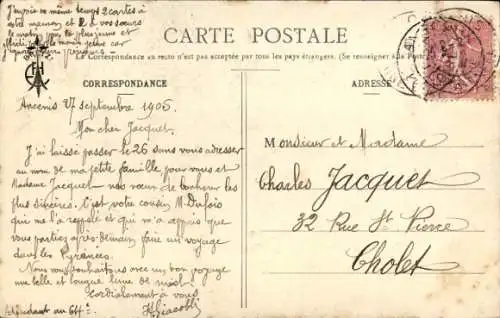 J'envoie en même temps 2 cartes à
votre maman et 2 à vos sœurs
le moins
CARTE POSTALE
La Correspondance au recto n'est pas acceptée par tous les pays étrangers. (Se renseigner à la Poste)
CORRESPONDANCE
ADRESSE
Ancenis 27 septembre 1905
Mon cher Jacquet,
J'ai laissé passer le 26 sans vous adresser
au nom de ma petite famille, pour vous et
Madame Jacquet nos vœux de bonheur les
plus sincères. C'est votre cousin M. Dufois
qui me l'a rappelé et qui m'a appris que
vous partiez après-demain, faire un voyage
dans les Pyrénées.
Nous vous souhaitons avec un bon voyage
une belle et longue lune de miel.
Cordialement à vous
Giacobbi
Adjudant au 64e
Monsieur et Madame
Charles Jacquet
32 Rue St Pierre
Cholet